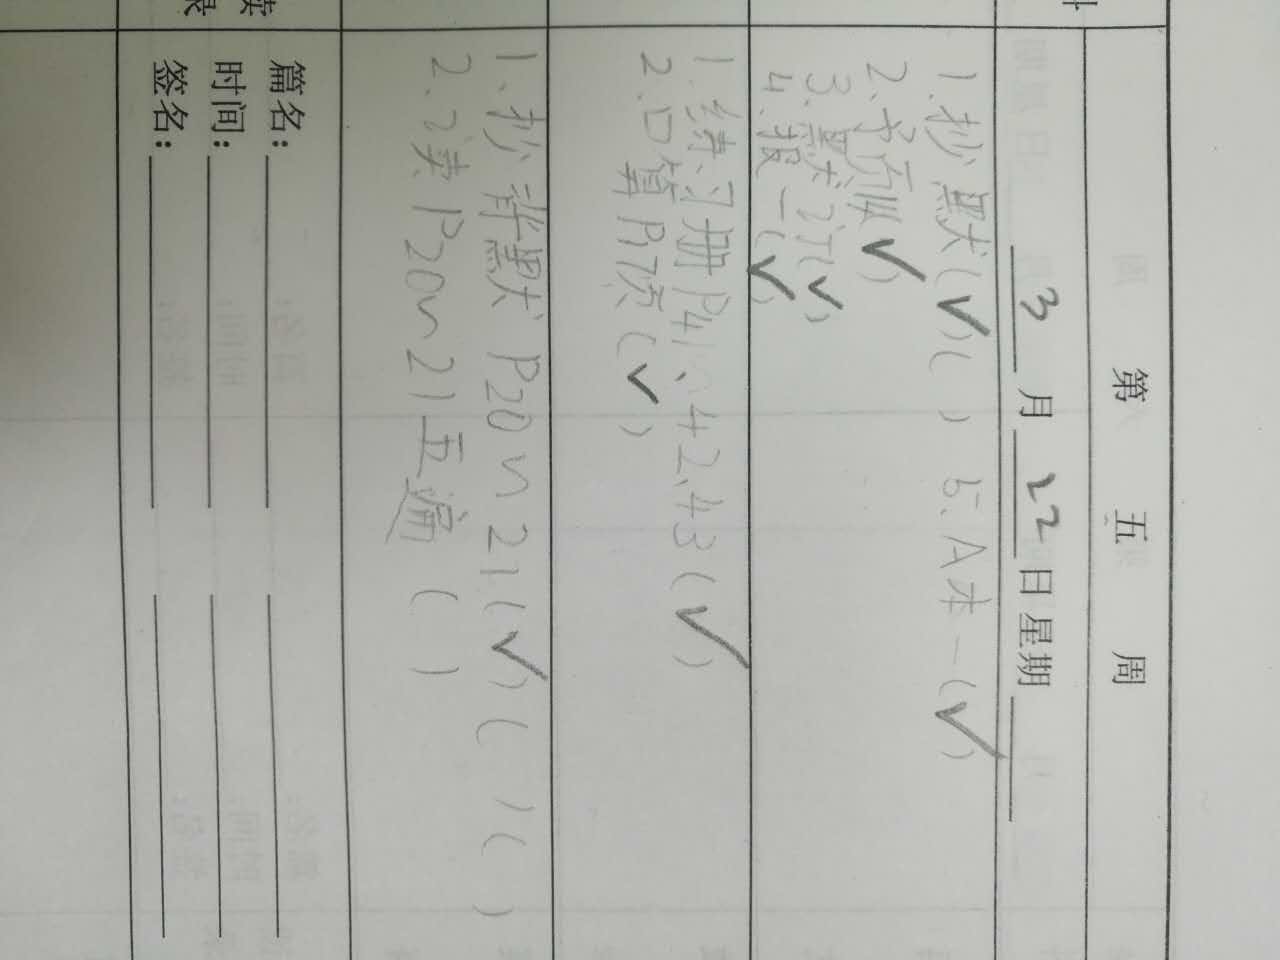 第五周
3月22日星期
1.抄默(✓)( ) 5.A本一(✓)
2.予页(✓)
3.默订(✓)
4.报一(✓)
1.练习册P41、42、43(✓)
2.口算P17页(✓)
1.抄背默P20~21(✓)( )( )
2.读P20~21五遍( )
篇名:
时间:
签名: